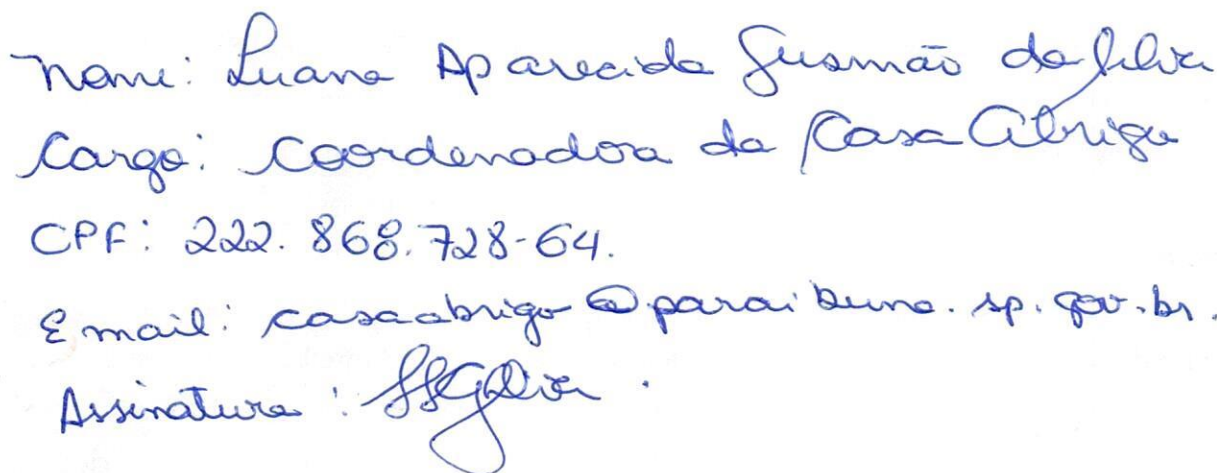 Nome: Luana Aparecida Gusmão da Silva
Cargo: Coordenadora da Casa Abrigo
CPF: 222.868.728-64.
Email: casaabrigo@paraibuna.sp.gov.br.
Assinatura: